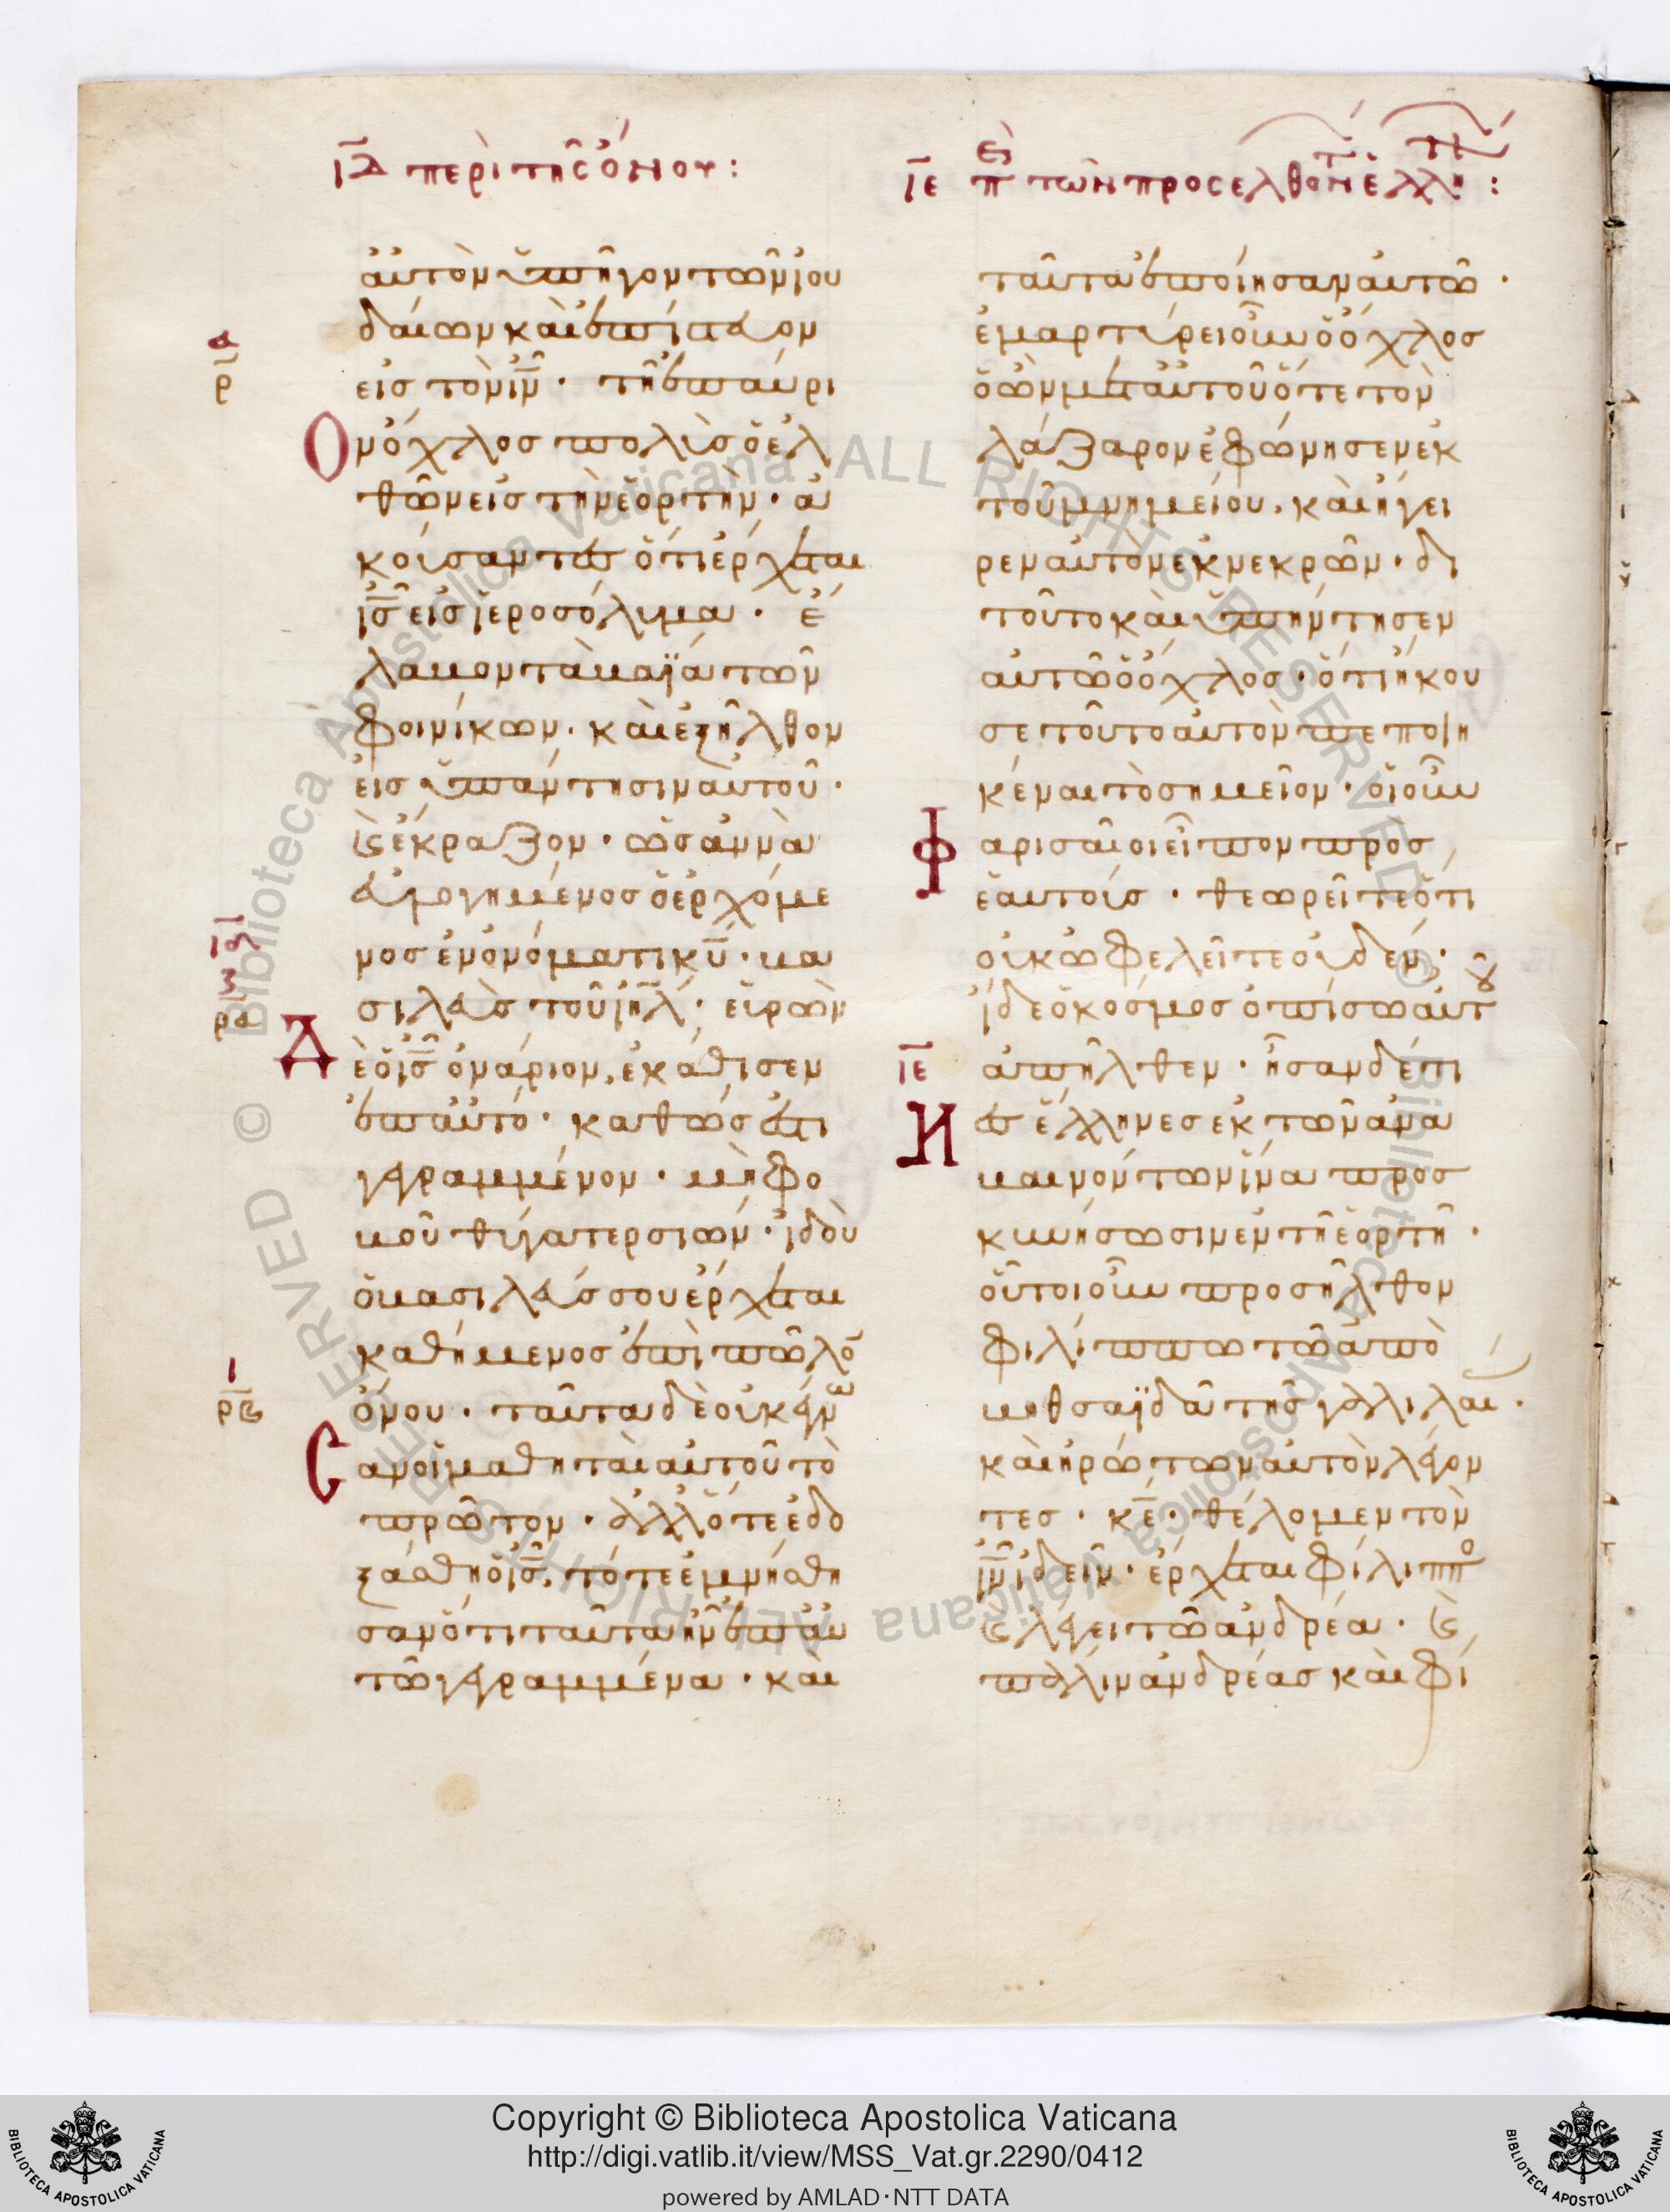 ΙΔ περὶ τῆς ὄνου :
αὐτὸν ὑπῆγον τῶν ἰου
δαίων καὶ ἐπίστευον
εἰς τὸν ιν̅ · τῇ ἐπαύρι
Ον ὄχλος πολὺς ὁ ἐλ
θὼν εἰς τὴν ἑορτὴν · ἀ
κούσαντες ὅτι ἔρχεται
ις̅ εἰς ἱεροσόλυμα · ἔ
λαβον τὰ βαΐα τῶν
φοινίκων · καὶ ἐξῆλθον
εἰς ὑπάντησιν αὐτοῦ ·
καὶ ἔκραζον · ὡσαννὰ
εὐλογημένος ὁ ἐρχόμε
νος ἐν ὀνόματι κυ̅ · βα
σιλεὺς τοῦ ιηλ̅ · εὑρὼν
Δὲ ὁ ις̅ ὀνάριον, ἐκάθισεν
ἐπ αὐτό · καθώς ἐστι
γεγραμμένον · μὴ φο
βοῦ θύγατερ σιών · ἰδοὺ
ὁ βασιλεύς σου ἔρχεται
καθήμενος ἐπὶ πῶλο̅
ὄνου · ταῦτα δὲ οὐκ ἔγνω
Σαν οἱ μαθηταὶ αὐτοῦ τὸ
πρῶτον · ἀλλ ὅτε ἐδο
ξάσθη ὁ ις̅, τότε ἐμνήσθη
σαν ὅτι ταῦτα ἦν ἐπ αὐ
τῶ γεγραμμένα · καὶ
ΙΕ π τῶν προσελθόντ ἑλλην :
ταῦτα ἐποίησαν αὐτῶ ·
ἐμαρτύρει οὖν ὁ ὄχλος
ὁ ὢν μετ αὐτοῦ ὅτε τὸν
λάζαρον ἐφώνησεν ἐκ
τοῦ μνημείου · καὶ ἤγει
ρεν αὐτὸν ἐκ νεκρῶν · δι
τοῦτο καὶ ὑπήντησεν
αὐτῶ ὁ ὄχλος · ὅτι ἤκου
σε τοῦτο αὐτὸν πεποιη
κέναι τὸ σημεῖον · οἱ οὖν
Φαρισαῖοι εἶπον πρὸς
ἑαυτούς · θεωρεῖτε ὅτι
οὐκ ὠφελεῖτε οὐδέν ·
ἴδε ὁ κόσμος ὀπίσω αὐτοῦ
ΙΕ ἀπῆλθεν · ἦσαν δέ τι
Νες ἕλληνες ἐκ τῶν ἀνα
βαινόντων ἵνα προσ
κυνήσωσιν ἐν τῇ ἑορτῇ ·
οὗτοι οὖν προσῆλθον
φιλίππω τῶ ἀπὸ
βηθσαϊδὰ τῆς γαλιλαι ·
καὶ ἠρώτων αὐτὸν λέγον
τες · κε̅ · θέλομεν τὸν
ιν̅ ἰδεῖν · ἔρχεται φίλιππο
καὶ λέγει τῶ ἀνδρέα · καὶ
πάλιν ἀνδρέας καὶ φί
Copyright © Biblioteca Apostolica Vaticana
http://digi.vatlib.it/view/MSS_Vat.gr.2290/0412
powered by AMLAD·NTT DATA